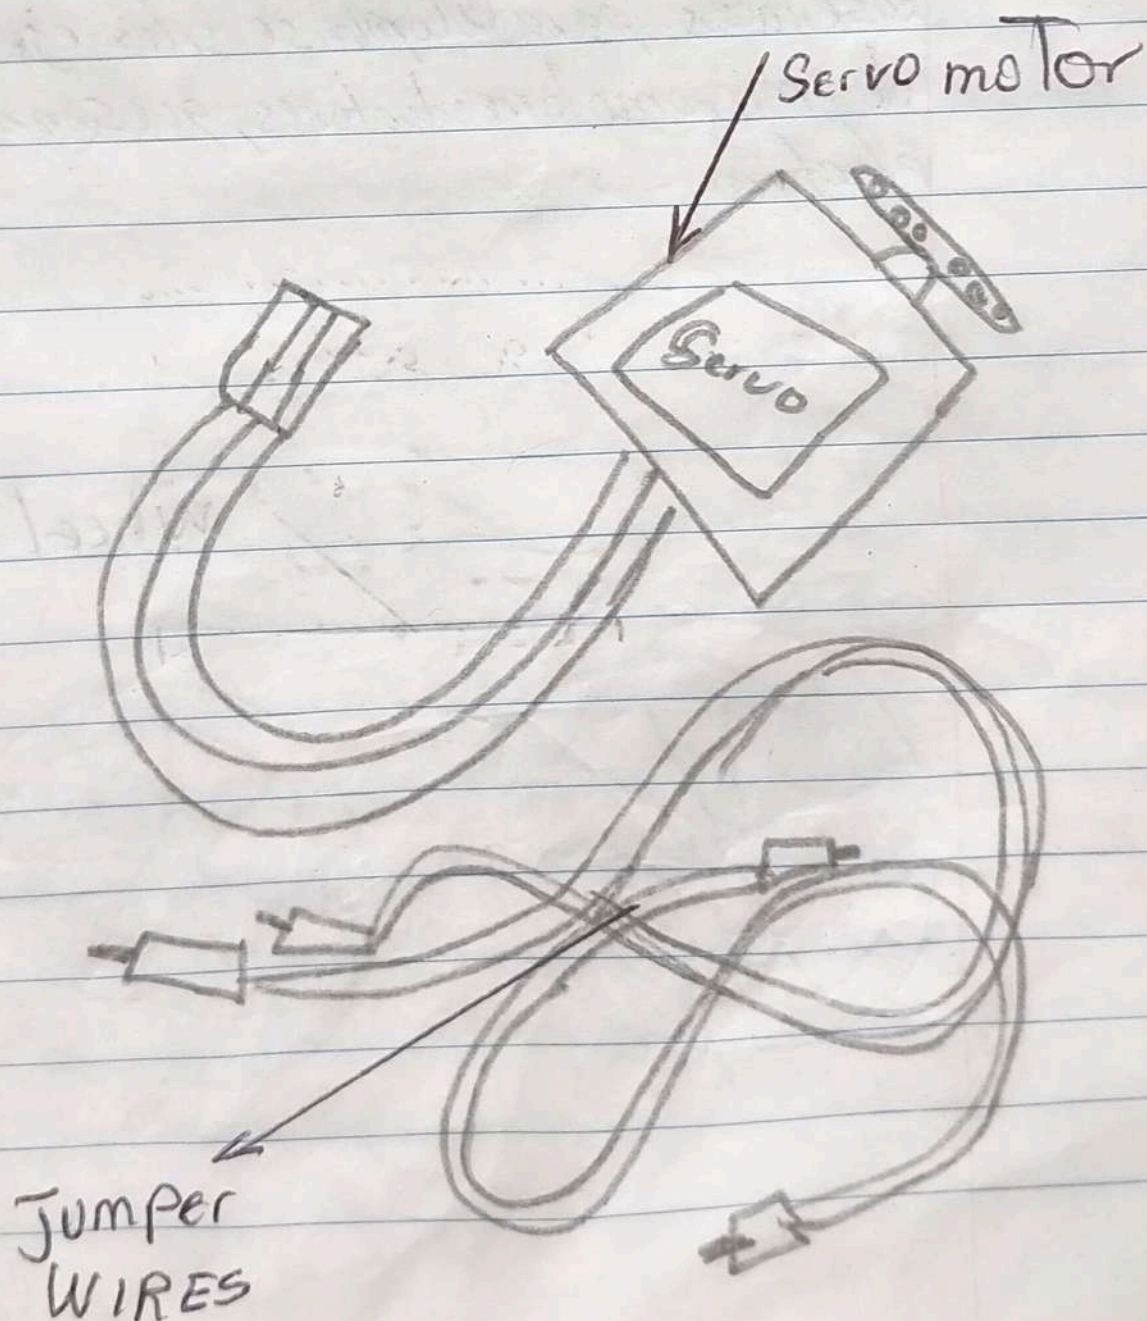 Servo moTor
Servo
Jumper
WIRES